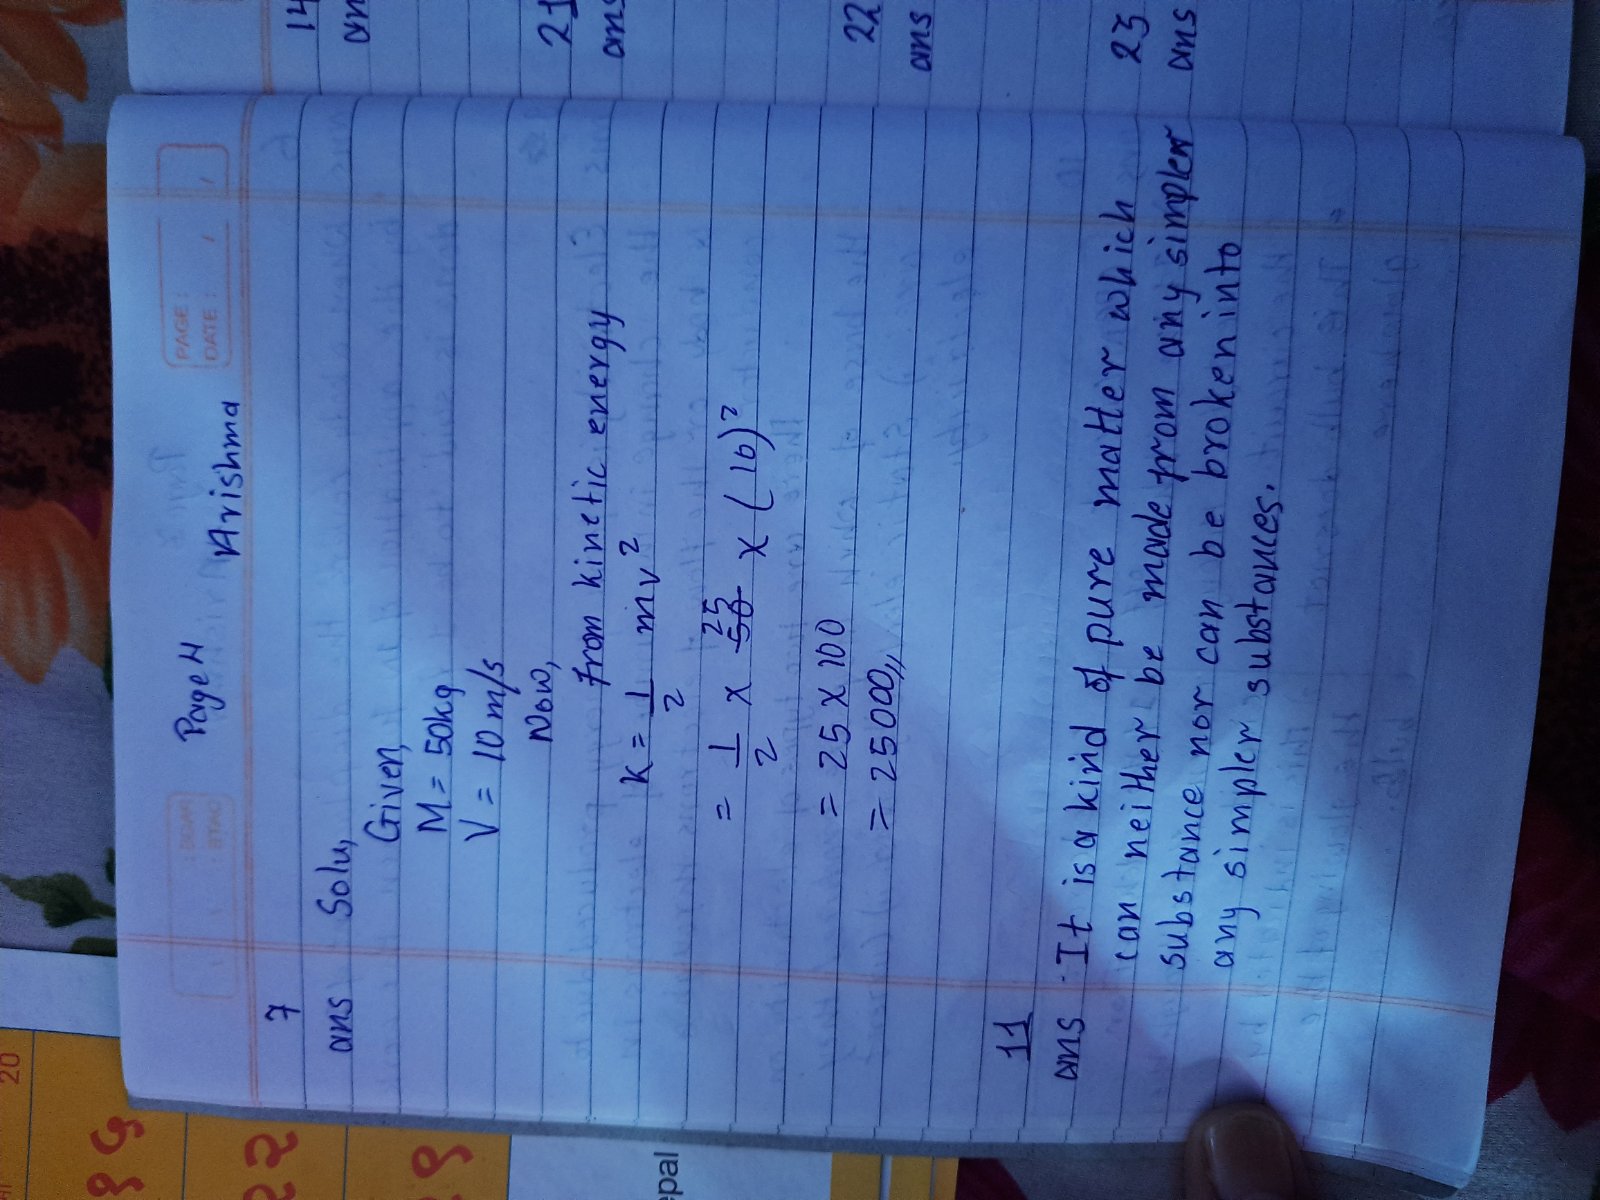 Page 4
Arishma
PAGE:
DATE:
7
ans Solu,
Given,
M = 50kg
V = 10 m/s
Now,
from kinetic energy
k = 1/2 mv²
= 1/2 x 50 25 x (10)²
= 25 x 100
= 25000,,
11
ans. It is a kind of pure matter which
can neither be made from any simpler
substance nor can be broken into
any simpler substances.
14
ans
21
ans
22
ans
23
ans
20
epal